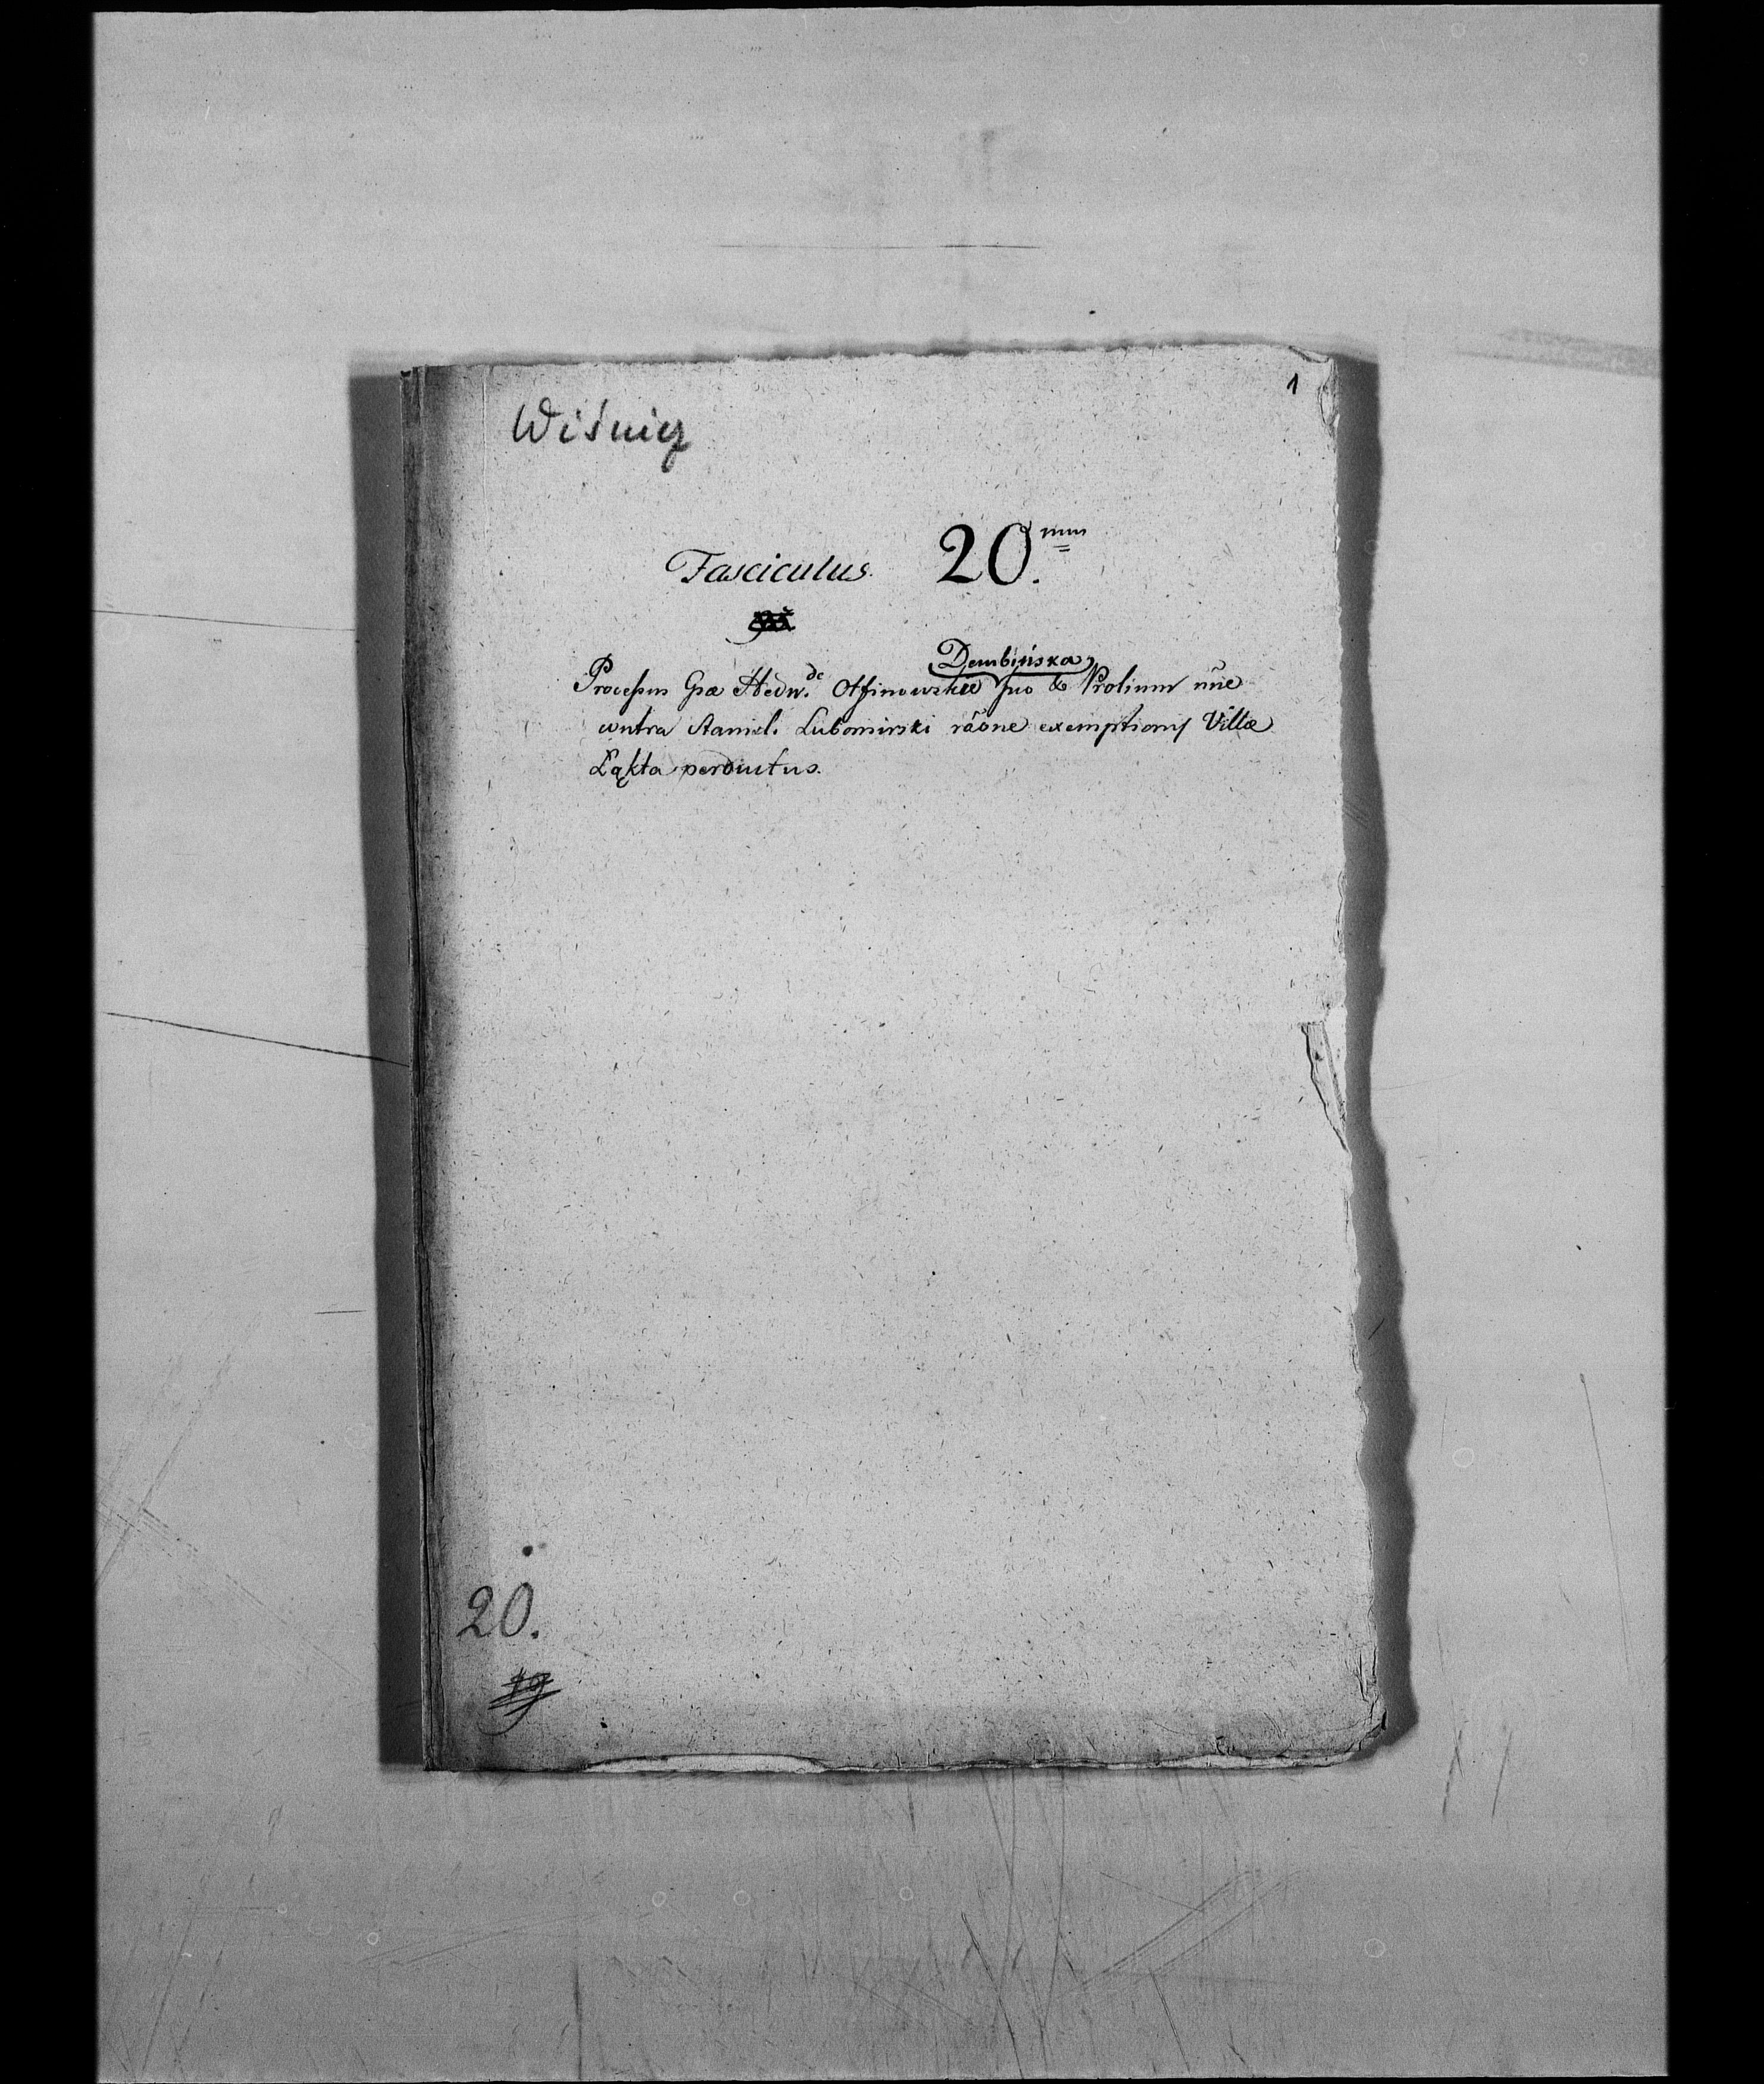 1
Wiśnicz
Fasciculus. 20.mus
Dembińska
Processus Gsæ Hedw. de Otfinowskie suo & Prolium nn̄e
contra Stanisl. Lubomirski rāōne exemptionis Villæ
Łąkta perductus.
20.
19